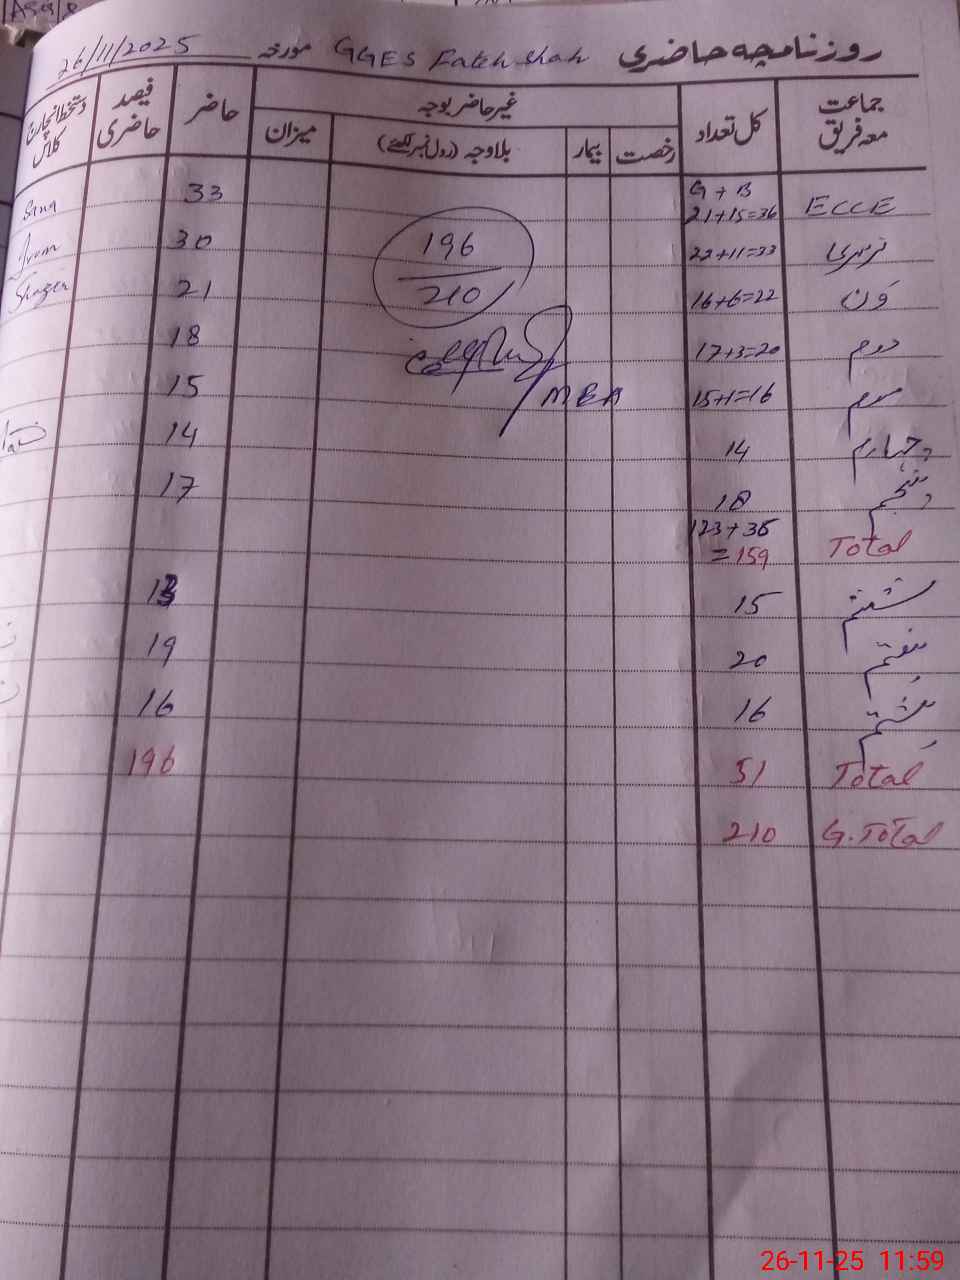 روزنامچہ حاضری GGES Fateh Shah مورخہ 26/11/2025
جماعت معہ فریق کل تعداد غیر حاضر بوجہ حاضر فیصد حاضری دستخط انچارج کلاس
رخصت بیمار بلاوجہ (رول نمبر لکھئے) میزان
G + B
ECCE 21+15=36 33 Sana
نرسری 22+11=33 30 Irem
ون 16+6=22 21
دوم 17+3=20 18
سوم 15+1=16 15
چہارم 14 14
پنجم 18 17
123+36
Total =159
ششم 15 13
ہفتم 20 19
ہشتم 16 16
Total 51 196
G.Total 210
196
210
MEA
26-11-25 11:59